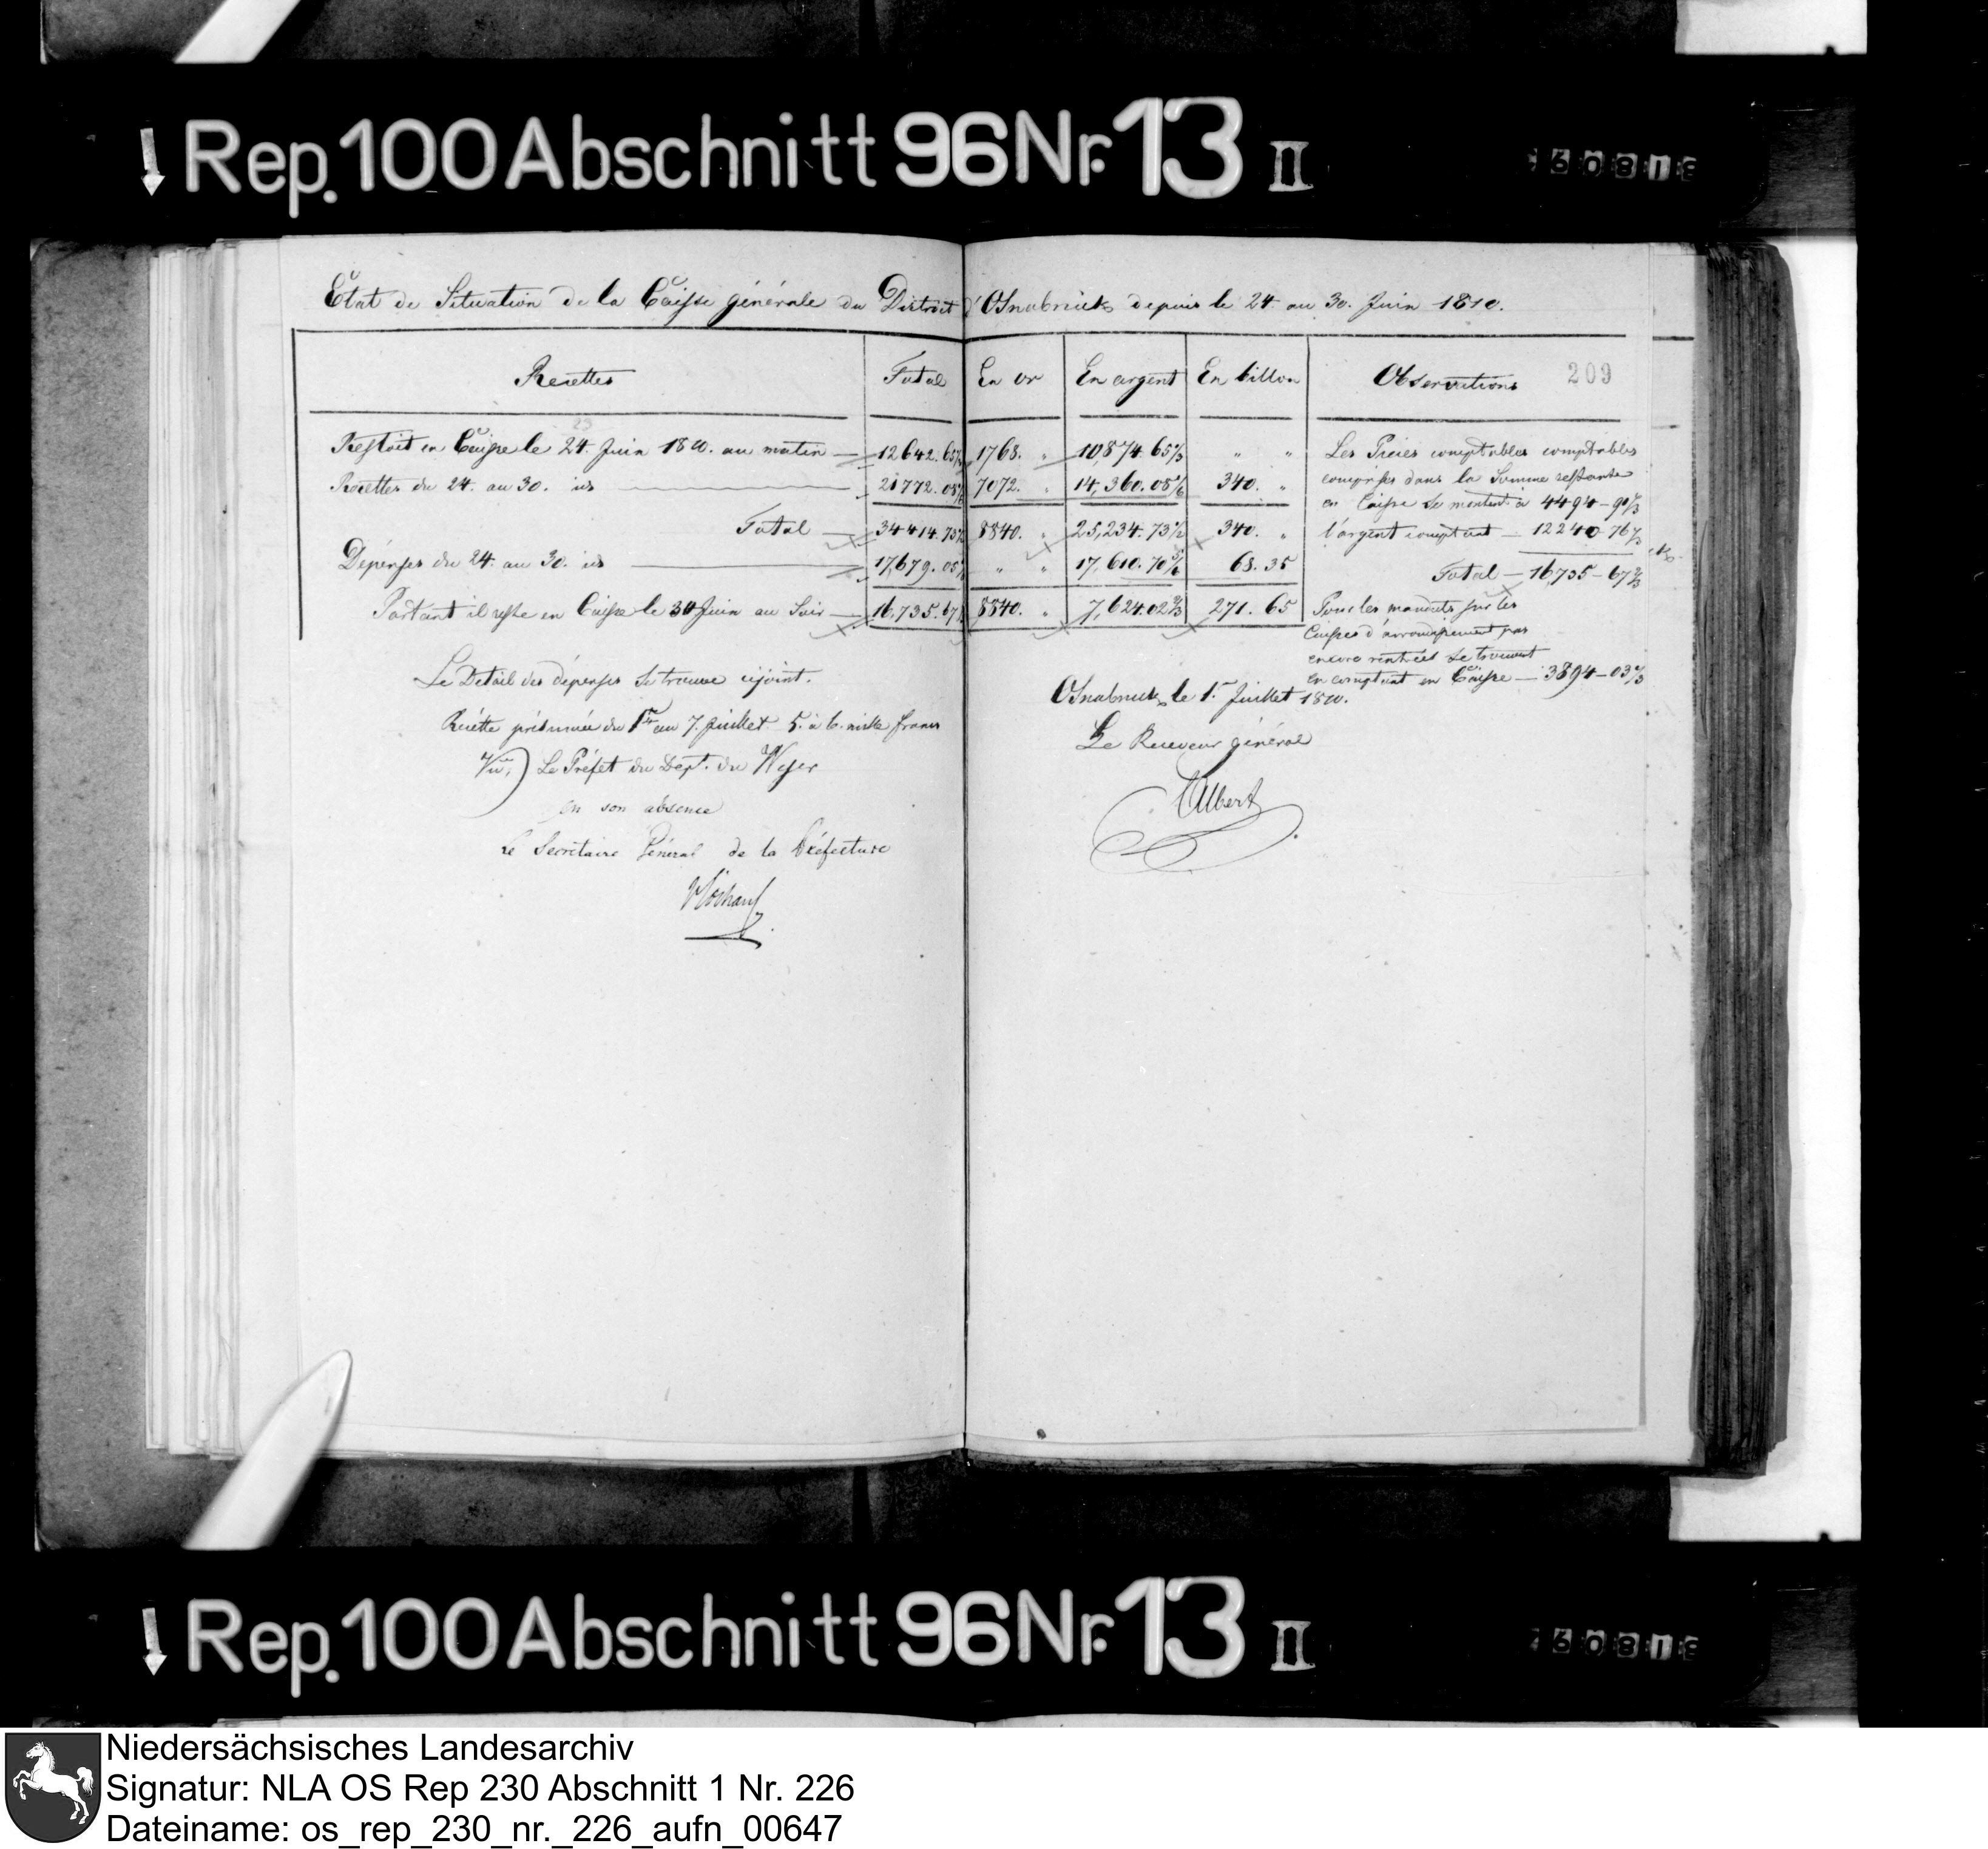 Rep. 100 Abschnitt 96 Nr. 13 II
Etat de Situation de la Caisse générale du District d'Osnabruck depuis le 24. au 30. Juin 1810.
Recettes Total En or En argent En billon Observations 209
Restoit en Caisse le 24. Juin 1810. au matin — 12642.65⅓ 1768. „ 10,874.65⅓ „ „
Recettes du 24. au 30. 21772.08 7072. „ 14,360.08⅙ 340. „
Total — 34414.73½ 8840. „ 25,234.73½ 340. „
Dépenses du 24. au 30. 17,679.05 „ „ 17,610.70⅚ 68.35
Partant il reste en Caisse le 30 Juin au Soir — 16,735.67⅔ 8840. „ 7,624.02⅔ 271.65
Les Pièces comptables comptables
comprises dans la Somme restante
en Caisse se montent à 4494-90⅓
l'argent comptant — 12240-76⅓
Total — 16,735-67⅔
Pour les mandats sur les
Caisses d'arrondissement pas
encore rentrées se trouvent
en comptant en Caisse — 3894-03
Le Detail des dépenses se trouve cijoint.
Recette présumée du 1er au 7. Juillet 5. à 6. mille francs
Vu, ) Le Préfet du Dept. du Weser
en son absence
Le Secrétaire Général de la Préfecture
Osnabruck, le 1er Juillet 1810.
Le Receveur général
Albert
Rep. 100 Abschnitt 96 Nr. 13 II
Niedersächsisches Landesarchiv
Signatur: NLA OS Rep 230 Abschnitt 1 Nr. 226
Dateiname: os_rep_230_nr._226_aufn_00647